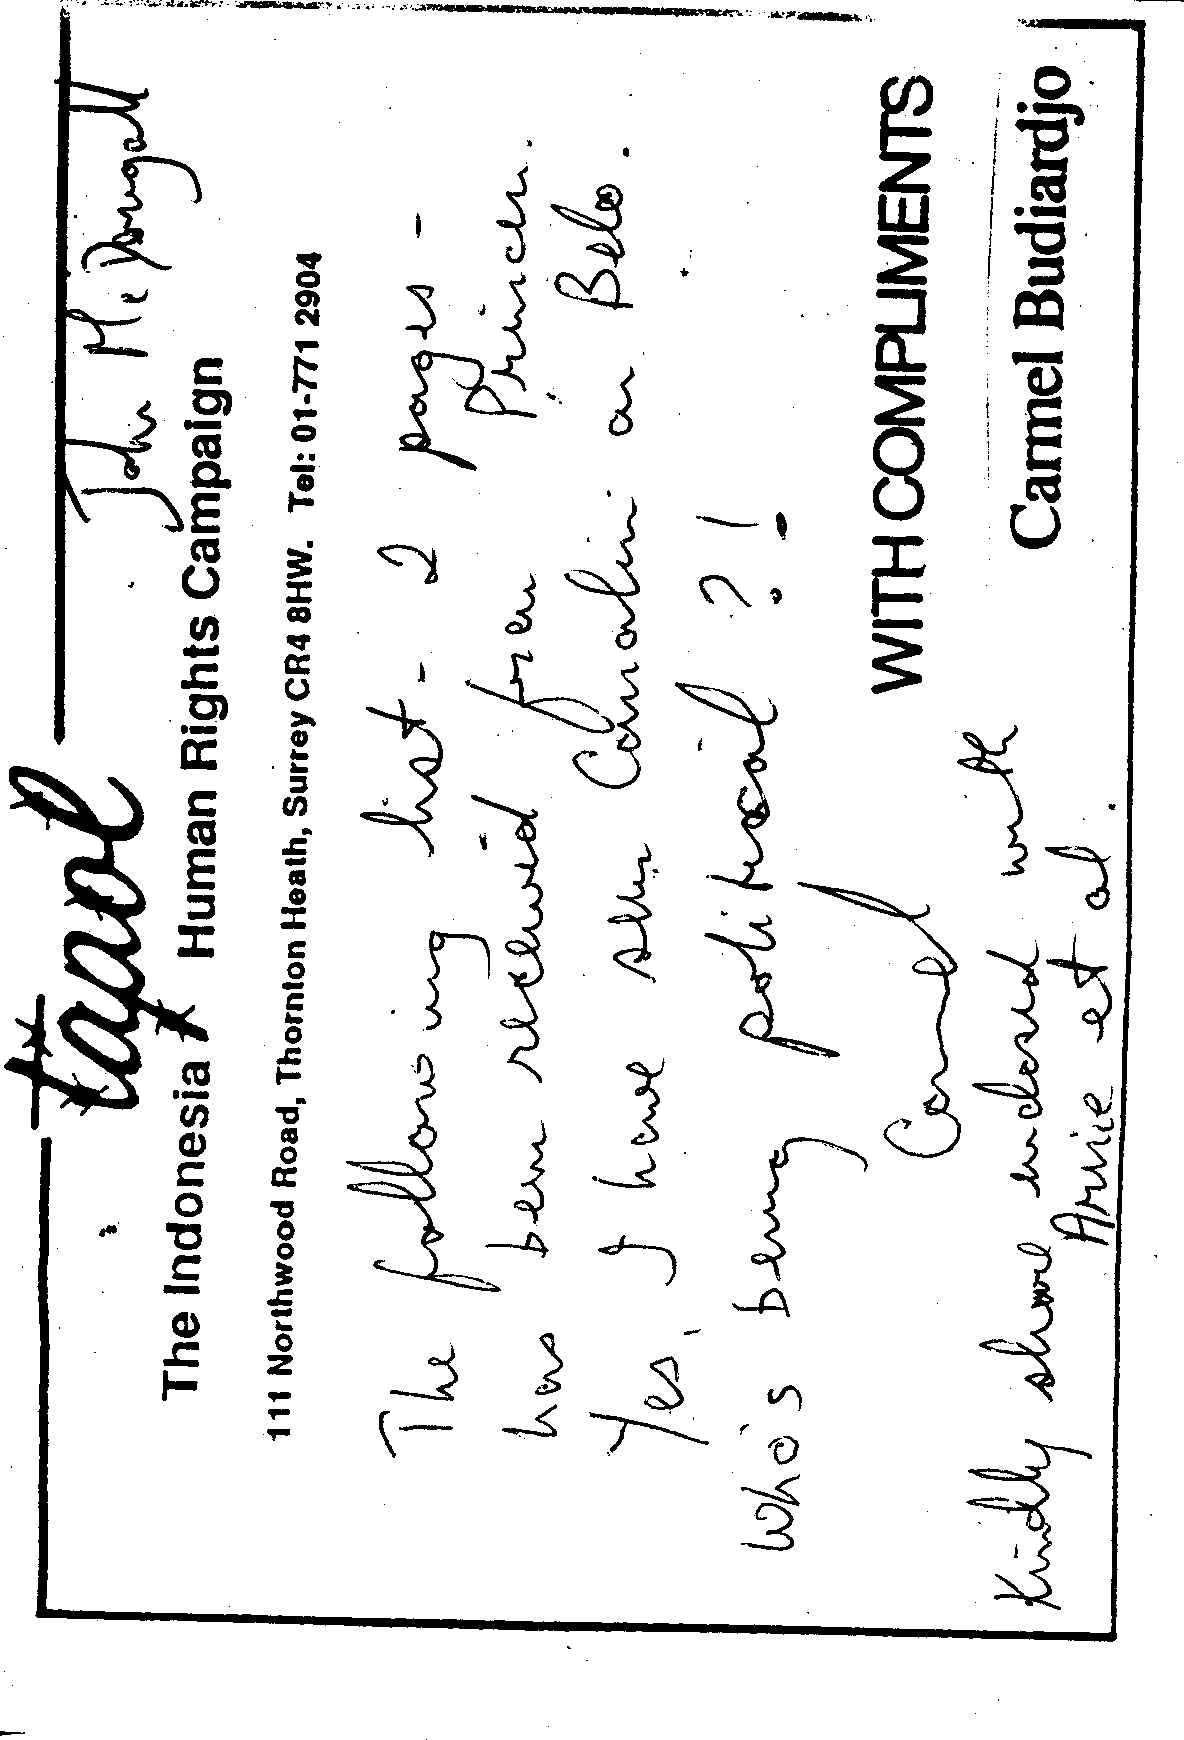 John McDougall
tapol
The Indonesia Human Rights Campaign
111 Northwood Road, Thornton Heath, Surrey CR4 8HW. Tel: 01-771 2904
The following list - 2 pages -
has been received from Princen.
Yes, I have seen Camalin on Belo.
Who's being political ?!
Carmel
WITH COMPLIMENTS
Kindly share enclosed with
Arnie et al.
Carmel Budiardjo